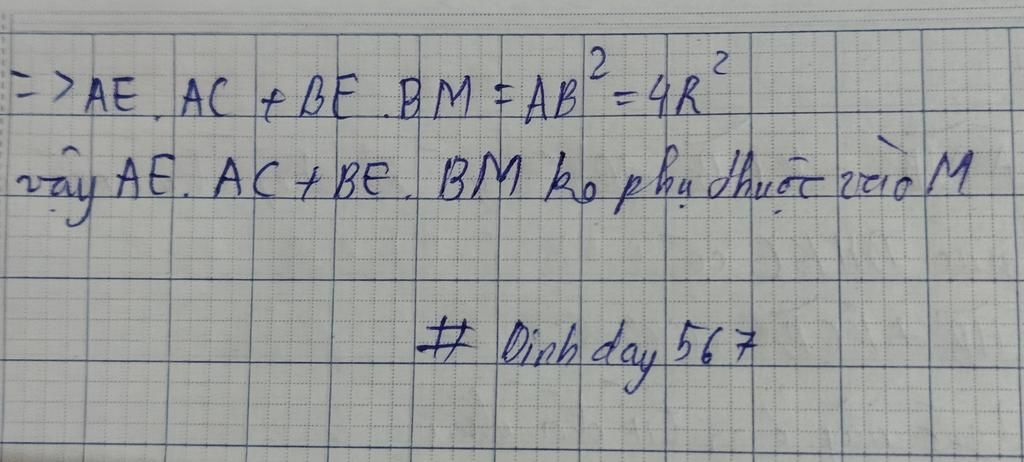 => AE. AC + BE. BM = AB² = 4R²
vậy AE. AC + BE. BM ko phụ thuộc vào M
# Dinh day 567